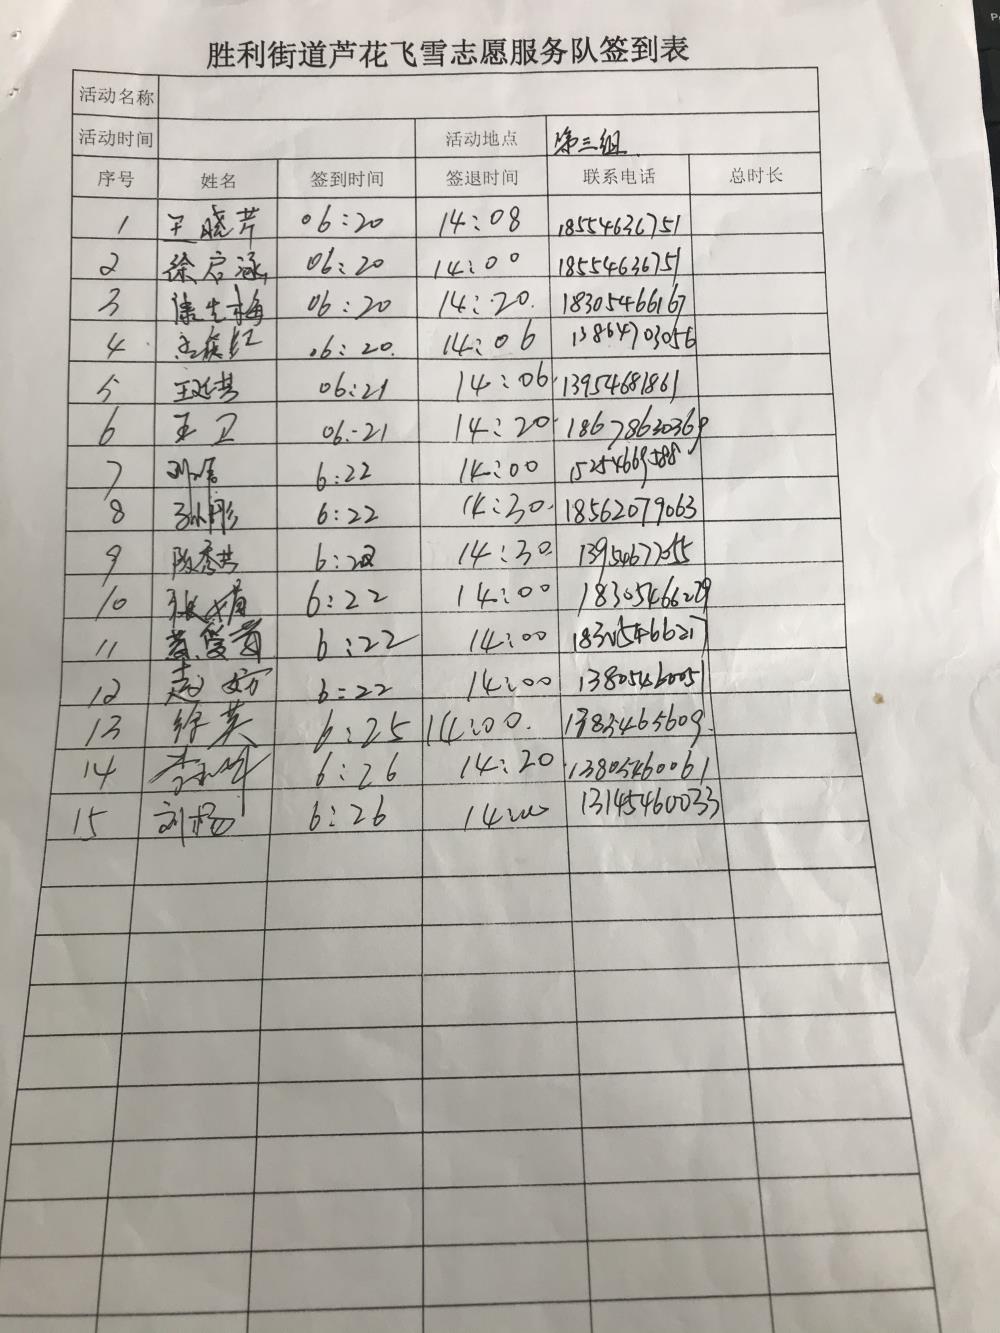 胜利街道芦花飞雪志愿服务队签到表
活动名称
活动时间 活动地点 第三组
序号 姓名 签到时间 签退时间 联系电话 总时长
1 王晓芹 06:20 14:08 18554636751
2 徐启涵 06:20 14:00 18554636751
3 06:20 14:20 18305466167
4 06:20 14:06 13864703056
5 06:21 14:06 13954681861
6 王卫 06:21 14:20 18678630369
7 6:22 14:00 15254669588
8 孙彤 6:22 14:30 18562079063
9 陈秀芸 6:22 14:30 13954677055
10 6:22 14:00 18305466229
11 6:22 14:00 18305466217
12 赵芳 6:22 14:00 13805460051
13 徐英 6:25 14:00
14 6:26 14:20 13805460061
15 刘杨 6:26 14:00 13145460033